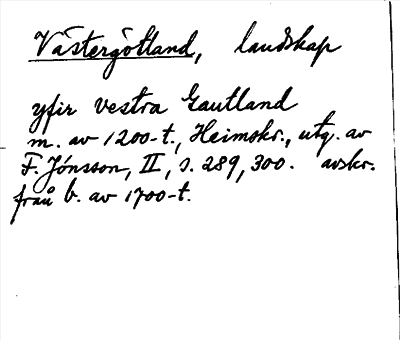 Västergötland, landskap
yfir vestra Gautland
m. av 1200-t., Heimskr., utg. av
F. Jónsson, II, s. 289, 300. avskr.
från b. av 1700-t.